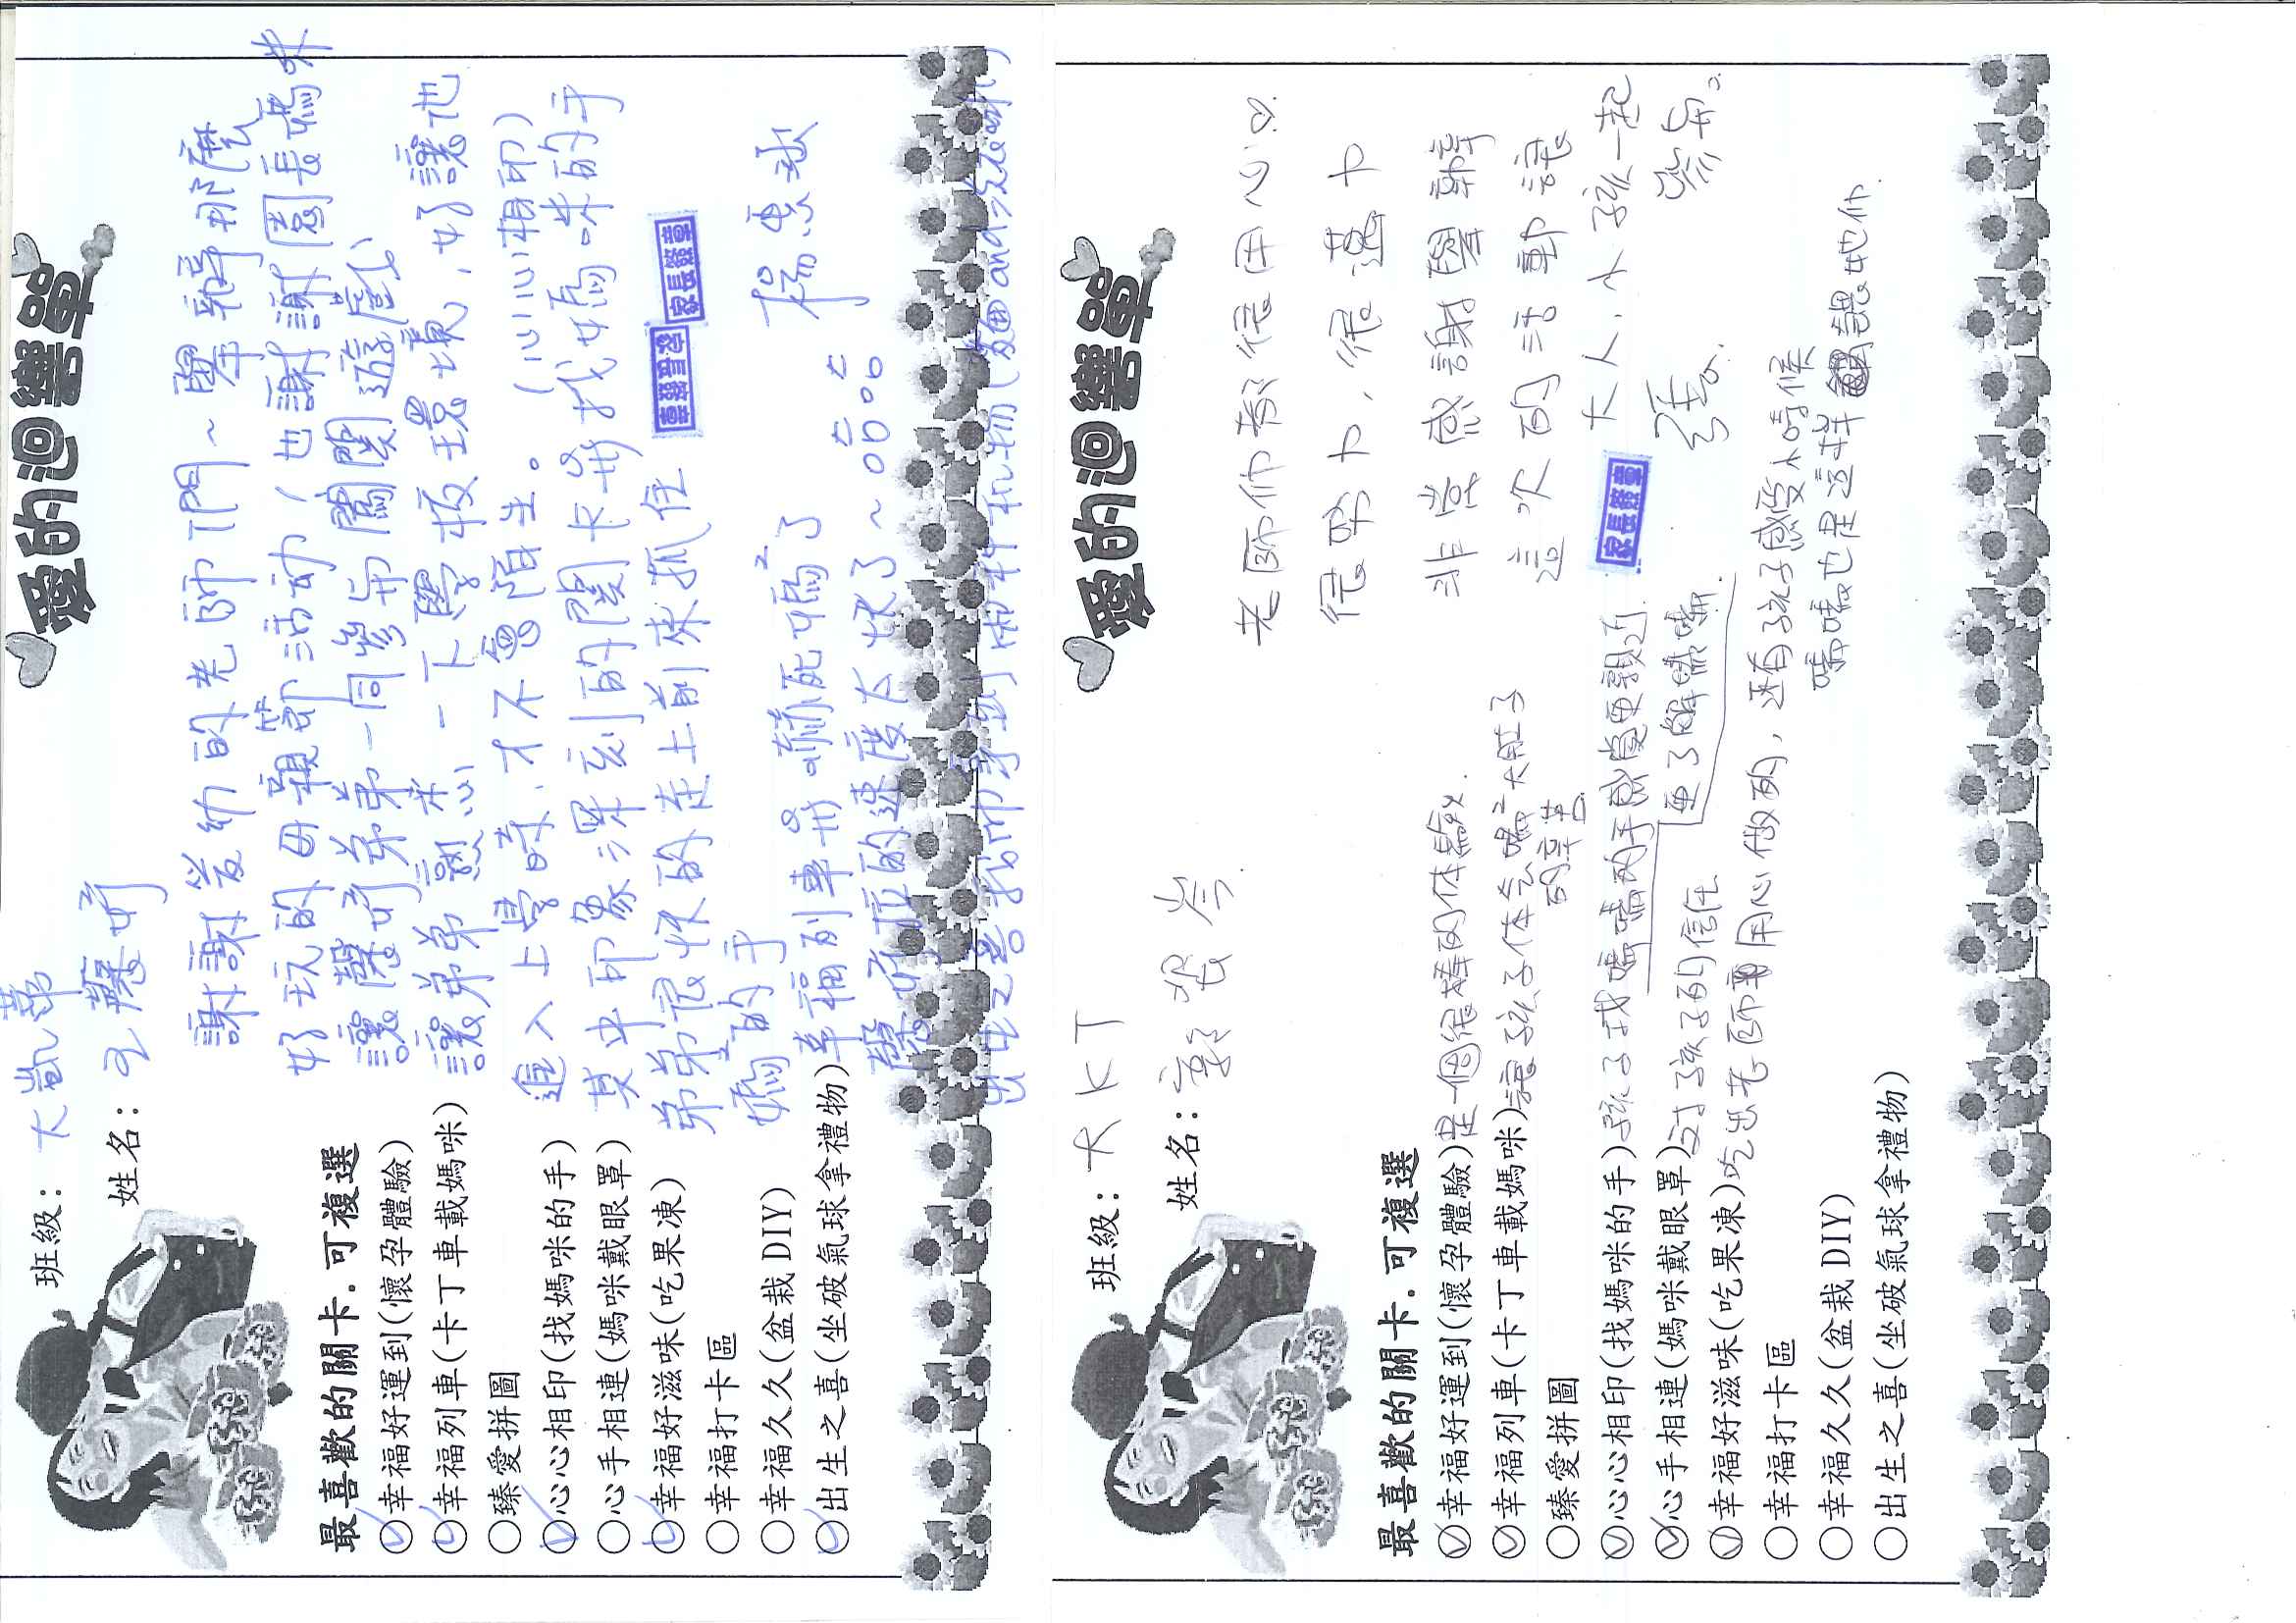 愛的迴響單
班級：大凱蒂
姓名：
最喜歡的關卡．可複選
幸福好運到(懷孕體驗)
幸福列車(卡丁車載媽咪)
臻愛拼圖
心心相印(找媽咪的手)
心手相連(媽咪戴眼罩)
幸福好滋味(吃果凍)
幸福打卡區
幸福久久(盆栽DIY)
出生之喜(坐破氣球拿禮物)
謝謝爱幼的老師們～舉辦那麼
好玩的母親節活动，也謝謝園長媽咪
讓馨妤弟弟一同參与闖關遊戲
讓弟弟熟悉一下學校環境，好讓他
進入上學時，才不會陌生。(心心相印)
其中印象深刻的關卡是找媽咪的手
弟弟很快的在上前來抓住
媽媽的手
幸福列車是嚇死媽媽了
馨妤 的速度太快了～
家長簽章
家長簽章
楊惠
愛的迴響單
班級：大KT
姓名：郭宸岑
最喜歡的關卡．可複選
幸福好運到(懷孕體驗)是一個很棒的体驗.
幸福列車(卡丁車載媽咪)讓孩子体会媽媽大肚子
的辛苦.
臻愛拼圖
心心相印(找媽咪的手)孩子找媽媽的手感覺更親近
更了解媽媽.
心手相連(媽咪戴眼罩)对孩子的信任
幸福好滋味(吃果凍)吃出老師用心做的，还有孩子感受小時候
媽媽也是這样 餵他們.
幸福打卡區
幸福久久(盆栽DIY)
出生之喜(坐破氣球拿禮物)
老師們都很用心
很努力，很盡力
非常感謝學校
這次的活動讓
大人、小孩一起
參与。
家長簽章